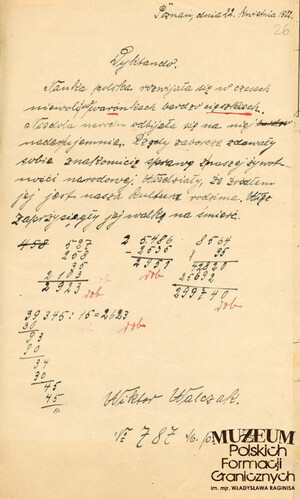 Poznań, dnia 22. kwietnia 1922.
26
Dyktando.
Nauka polska rozwijała się w czasach
niewoli w warónkach bardzo cięszkich.
Niedola narodu odbijała się na niej bardzo
nader ujemnie. Rządy zaborcze zdawały
sobie znakomicie sprawę z naszej żywot-
ności narodowej. Wiedziały, że źródłem
jej jest nasza kultura rodzima, więc
zaprzysięgły jej walkę na śmierć.
458 587 2 5486 8564
258 2535 35
35 2951 42820
2103 dob 25692
2923 299740
dob dob
39345 : 15 = 2623
30 dob
93
90
34
30
45
45
Wiktor Walczak.
№ 787
MUZEUM
Polskich
Formacji
Granicznych
im. mjr. WŁADYSŁAWA RAGINISA